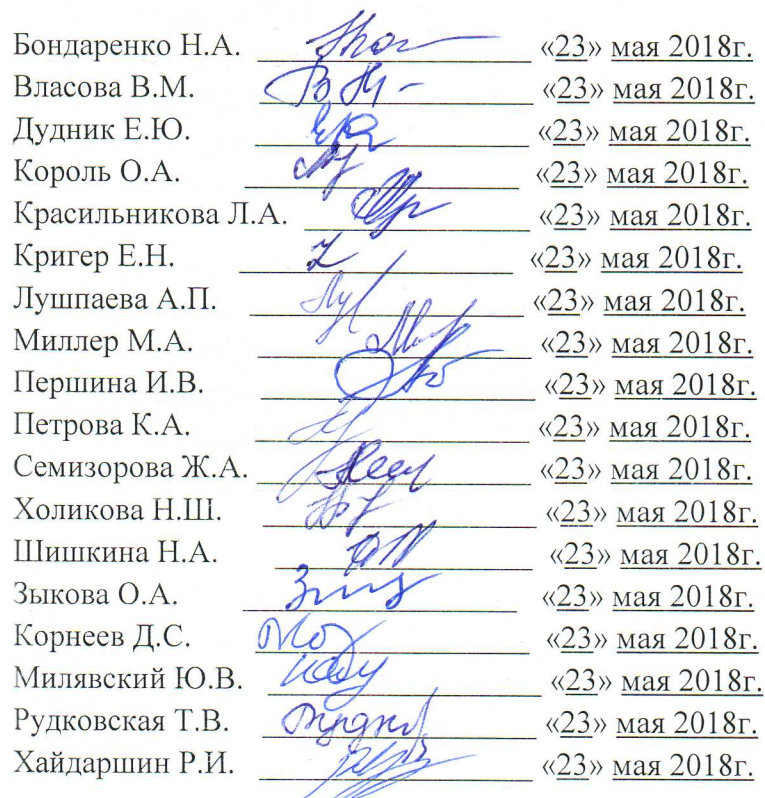 Бондаренко Н.А. «23» мая 2018г.
Власова В.М. «23» мая 2018г.
Дудник Е.Ю. «23» мая 2018г.
Король О.А. «23» мая 2018г.
Красильникова Л.А. «23» мая 2018г.
Кригер Е.Н. «23» мая 2018г.
Лушпаева А.П. «23» мая 2018г.
Миллер М.А. «23» мая 2018г.
Першина И.В. «23» мая 2018г.
Петрова К.А. «23» мая 2018г.
Семизорова Ж.А. «23» мая 2018г.
Холикова Н.Ш. «23» мая 2018г.
Шишкина Н.А. «23» мая 2018г.
Зыкова О.А. «23» мая 2018г.
Корнеев Д.С. «23» мая 2018г.
Милявский Ю.В. «23» мая 2018г.
Рудковская Т.В. «23» мая 2018г.
Хайдаршин Р.И. «23» мая 2018г.